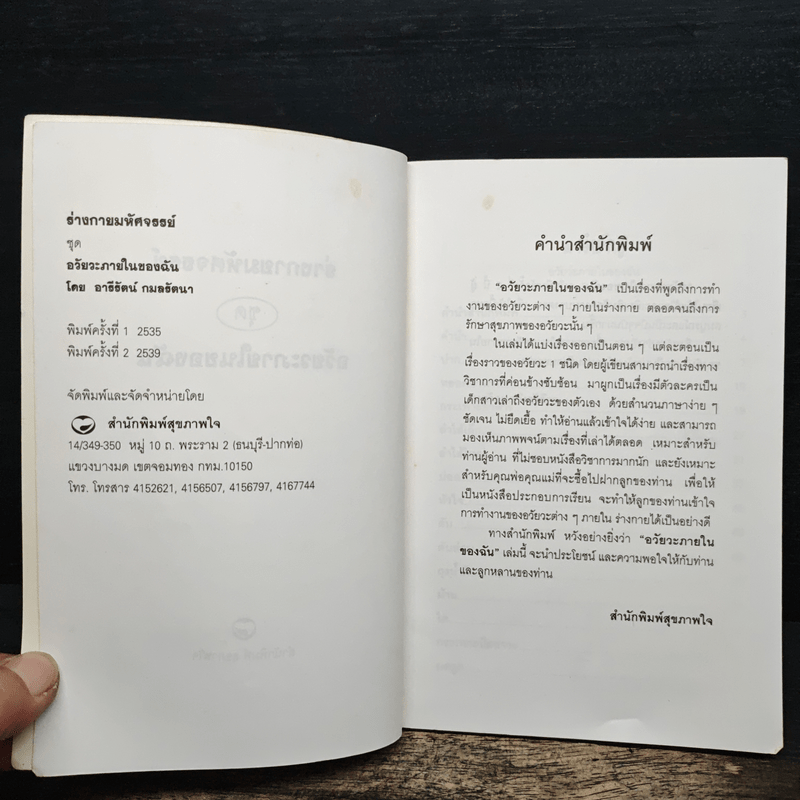 ร่างกายมหัศจรรย์
ชุด
อวัยวะภายในของฉัน
โดย อารีรัตน์ กมลรัตนา
พิมพ์ครั้งที่ 1 2535
พิมพ์ครั้งที่ 2 2539
จัดพิมพ์และจัดจำหน่ายโดย
สำนักพิมพ์สุขภาพใจ
14/349-350 หมู่ 10 ถ. พระราม 2 (ธนบุรี-ปากท่อ)
แขวงบางมด เขตจอมทอง กทม.10150
โทร. โทรสาร 4152621, 4156507, 4156797, 4167744
คำนำสำนักพิมพ์
"อวัยวะภายในของฉัน" เป็นเรื่องที่พูดถึงการทำ
งานของอวัยวะต่าง ๆ ภายในร่างกาย ตลอดจนถึงการ
รักษาสุขภาพของอวัยวะนั้น ๆ
ในเล่มได้แบ่งเรื่องออกเป็นตอน ๆ แต่ละตอนเป็น
เรื่องราวของอวัยวะ 1 ชนิด โดยผู้เขียนสามารถนำเรื่องทาง
วิชาการที่ค่อนข้างซับซ้อน มาผูกเป็นเรื่องมีตัวละครเป็น
เด็กสาวเล่าถึงอวัยวะของตัวเอง ด้วยสำนวนภาษาง่าย ๆ
ชัดเจน ไม่ยืดเยื้อ ทำให้อ่านแล้วเข้าใจได้ง่าย และสามารถ
มองเห็นภาพพจน์ตามเรื่องที่เล่าได้ตลอด เหมาะสำหรับ
ท่านผู้อ่าน ที่ไม่ชอบหนังสือวิชาการมากนัก และยังเหมาะ
สำหรับคุณพ่อคุณแม่ที่จะซื้อไปฝากลูกของท่าน เพื่อให้
เป็นหนังสือประกอบการเรียน จะทำให้ลูกของท่านเข้าใจ
การทำงานของอวัยวะต่าง ๆ ภายใน ร่างกายได้เป็นอย่างดี
ทางสำนักพิมพ์ หวังอย่างยิ่งว่า "อวัยวะภายใน
ของฉัน" เล่มนี้ จะนำประโยชน์ และความพอใจให้กับท่าน
และลูกหลานของท่าน
สำนักพิมพ์สุขภาพใจ